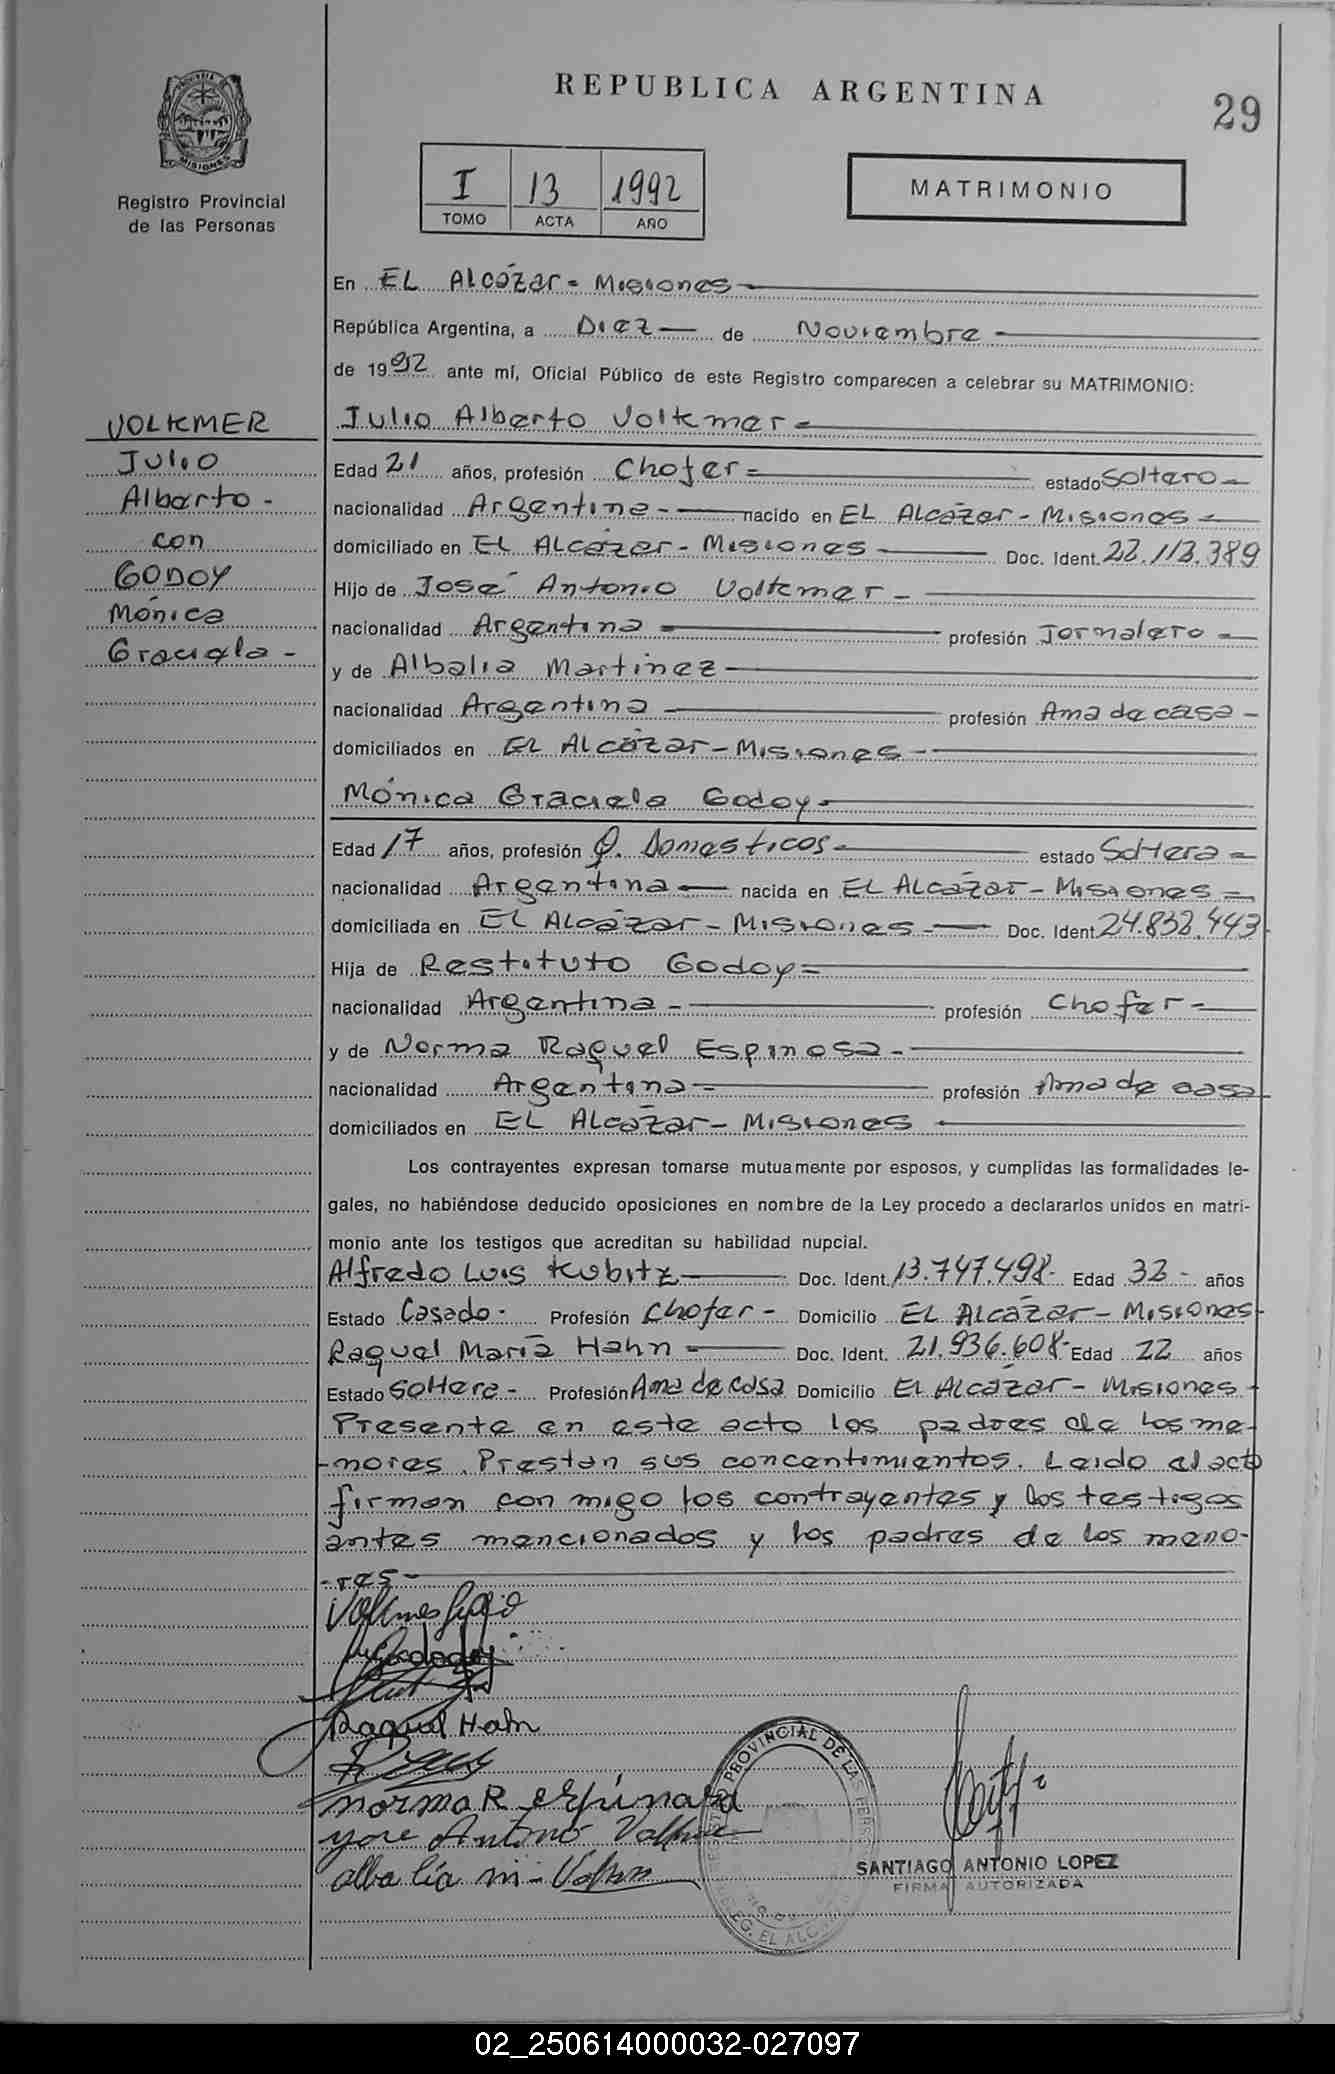 REPUBLICA ARGENTINA
29
MISIONES
Registro Provincial
de las Personas
I 13 1992
TOMO ACTA AÑO
MATRIMONIO
En EL Alcázar - Misiones
República Argentina, a Diez de Noviembre
de 1992 ante mí, Oficial Público de este Registro comparecen a celebrar su MATRIMONIO:
VOLKMER
Julio
Alberto -
con
GODOY
Mónica
Graciela -
Julio Alberto Volkmer
Edad 21 años, profesión Chofer estado Soltero
nacionalidad Argentina nacido en EL Alcázar - Misiones
domiciliado en EL Alcázar - Misiones Doc. Ident. 22.113.389
Hijo de José Antonio Volkmer
nacionalidad Argentina profesión Jornalero
y de Albalia Martinez
nacionalidad Argentina profesión Ama de casa
domiciliados en EL Alcázar - Misiones
Mónica Graciela Godoy
Edad 17 años, profesión Q. Domesticos estado Soltera
nacionalidad Argentina nacida en EL Alcázar - Misiones
domiciliada en EL Alcázar - Misiones Doc. Ident. 24.832.443
Hija de Restituto Godoy
nacionalidad Argentina profesión Chofer
y de Norma Raquel Espinosa
nacionalidad Argentina profesión Ama de casa
domiciliados en EL Alcázar - Misiones
Los contrayentes expresan tomarse mutuamente por esposos, y cumplidas las formalidades le-
gales, no habiéndose deducido oposiciones en nombre de la Ley procedo a declararlos unidos en matri-
monio ante los testigos que acreditan su habilidad nupcial.
Alfredo Luis Kubitz Doc. Ident. 13.747.498 Edad 32 años
Estado Casado Profesión Chofer Domicilio EL Alcázar - Misiones
Raquel María Hahn Doc. Ident. 21.936.608 Edad 22 años
Estado Soltera Profesión Ama de casa Domicilio EL Alcázar - Misiones
Presente en este acto los padres de los me-
-nores, Prestan sus concentimientos. Leido el acto
firman con migo los contrayentes y los testigos
antes mencionados y los padres de los meno-
-res
Raquel Hahn
norma R espinosa
Antonio
alba lía m
REGISTRO PROVINCIAL DE LAS PERSONAS
DELEG. EL ALCAZAR
SANTIAGO ANTONIO LOPEZ
FIRMA AUTORIZADA
02_250614000032-027097